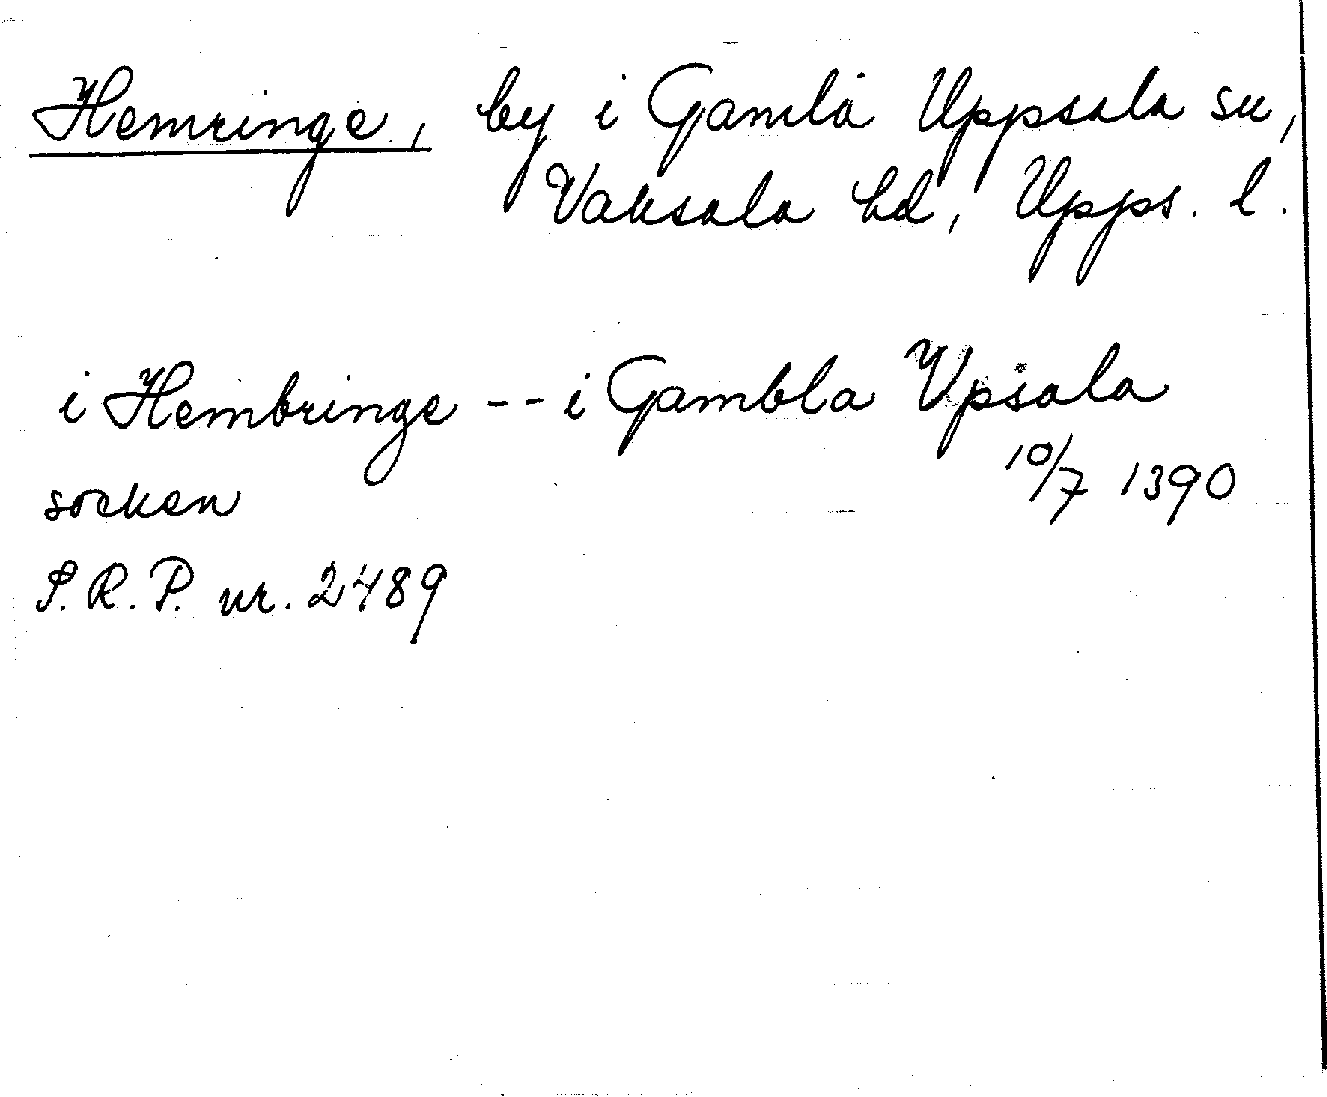 Hemringe, by i Gamla Uppsala sn,
Vaksala hd, Upps. l.
i Hembringe -- i Gambla Vpsala
socken
10/7 1390
S.R.P. nr. 2489